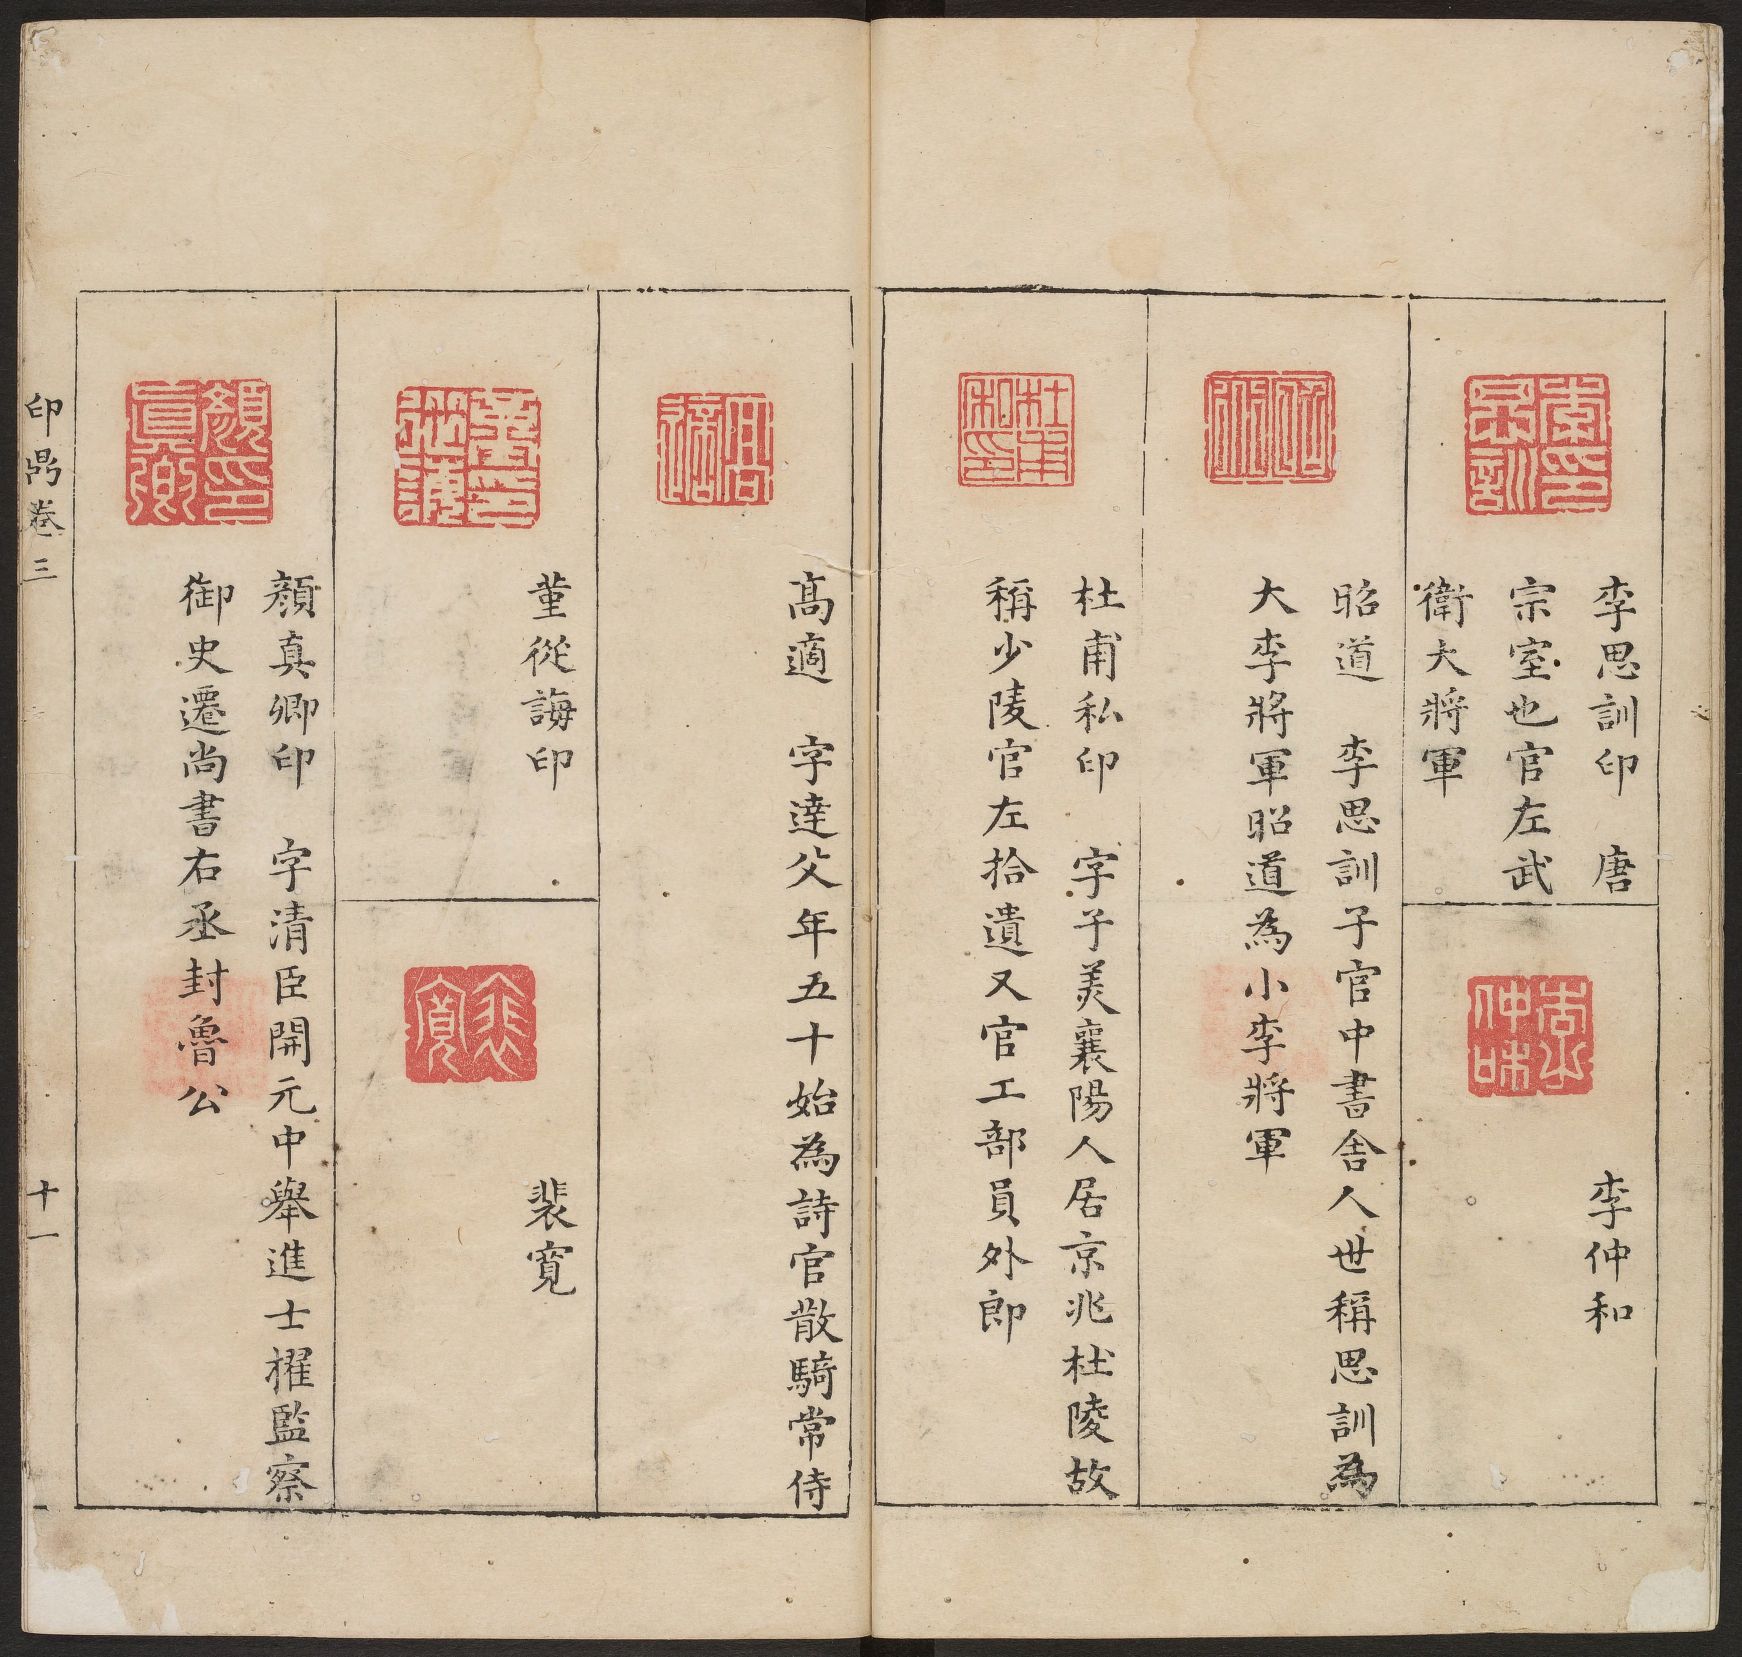 李思訓印　唐
宗室也官左武
衛大將軍
李仲和
昭道　李思訓子官中書舍人世稱思訓為
大李將軍昭道為小李將軍
杜甫私印
杜甫私印　字子美襄陽人居京兆杜陵故
稱少陵官左拾遺又官工部員外郎
高適
高適　字達父年五十始為詩官散騎常侍
董從誨印
裴寬
裴寬
顏真卿印
顏真卿印　字清臣開元中舉進士擢監察
御史遷尚書右丞封魯公
卷三
十一